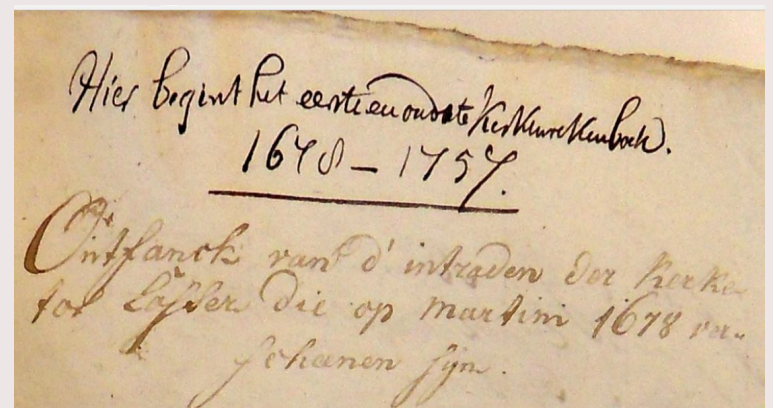 Hier begint het eerste en oudste Kerkenrekenboek.
1678 – 1757.
Ontfanck van d' intraden der Kerke
tot Losser die op martini 1678 ver-
schenen syn.